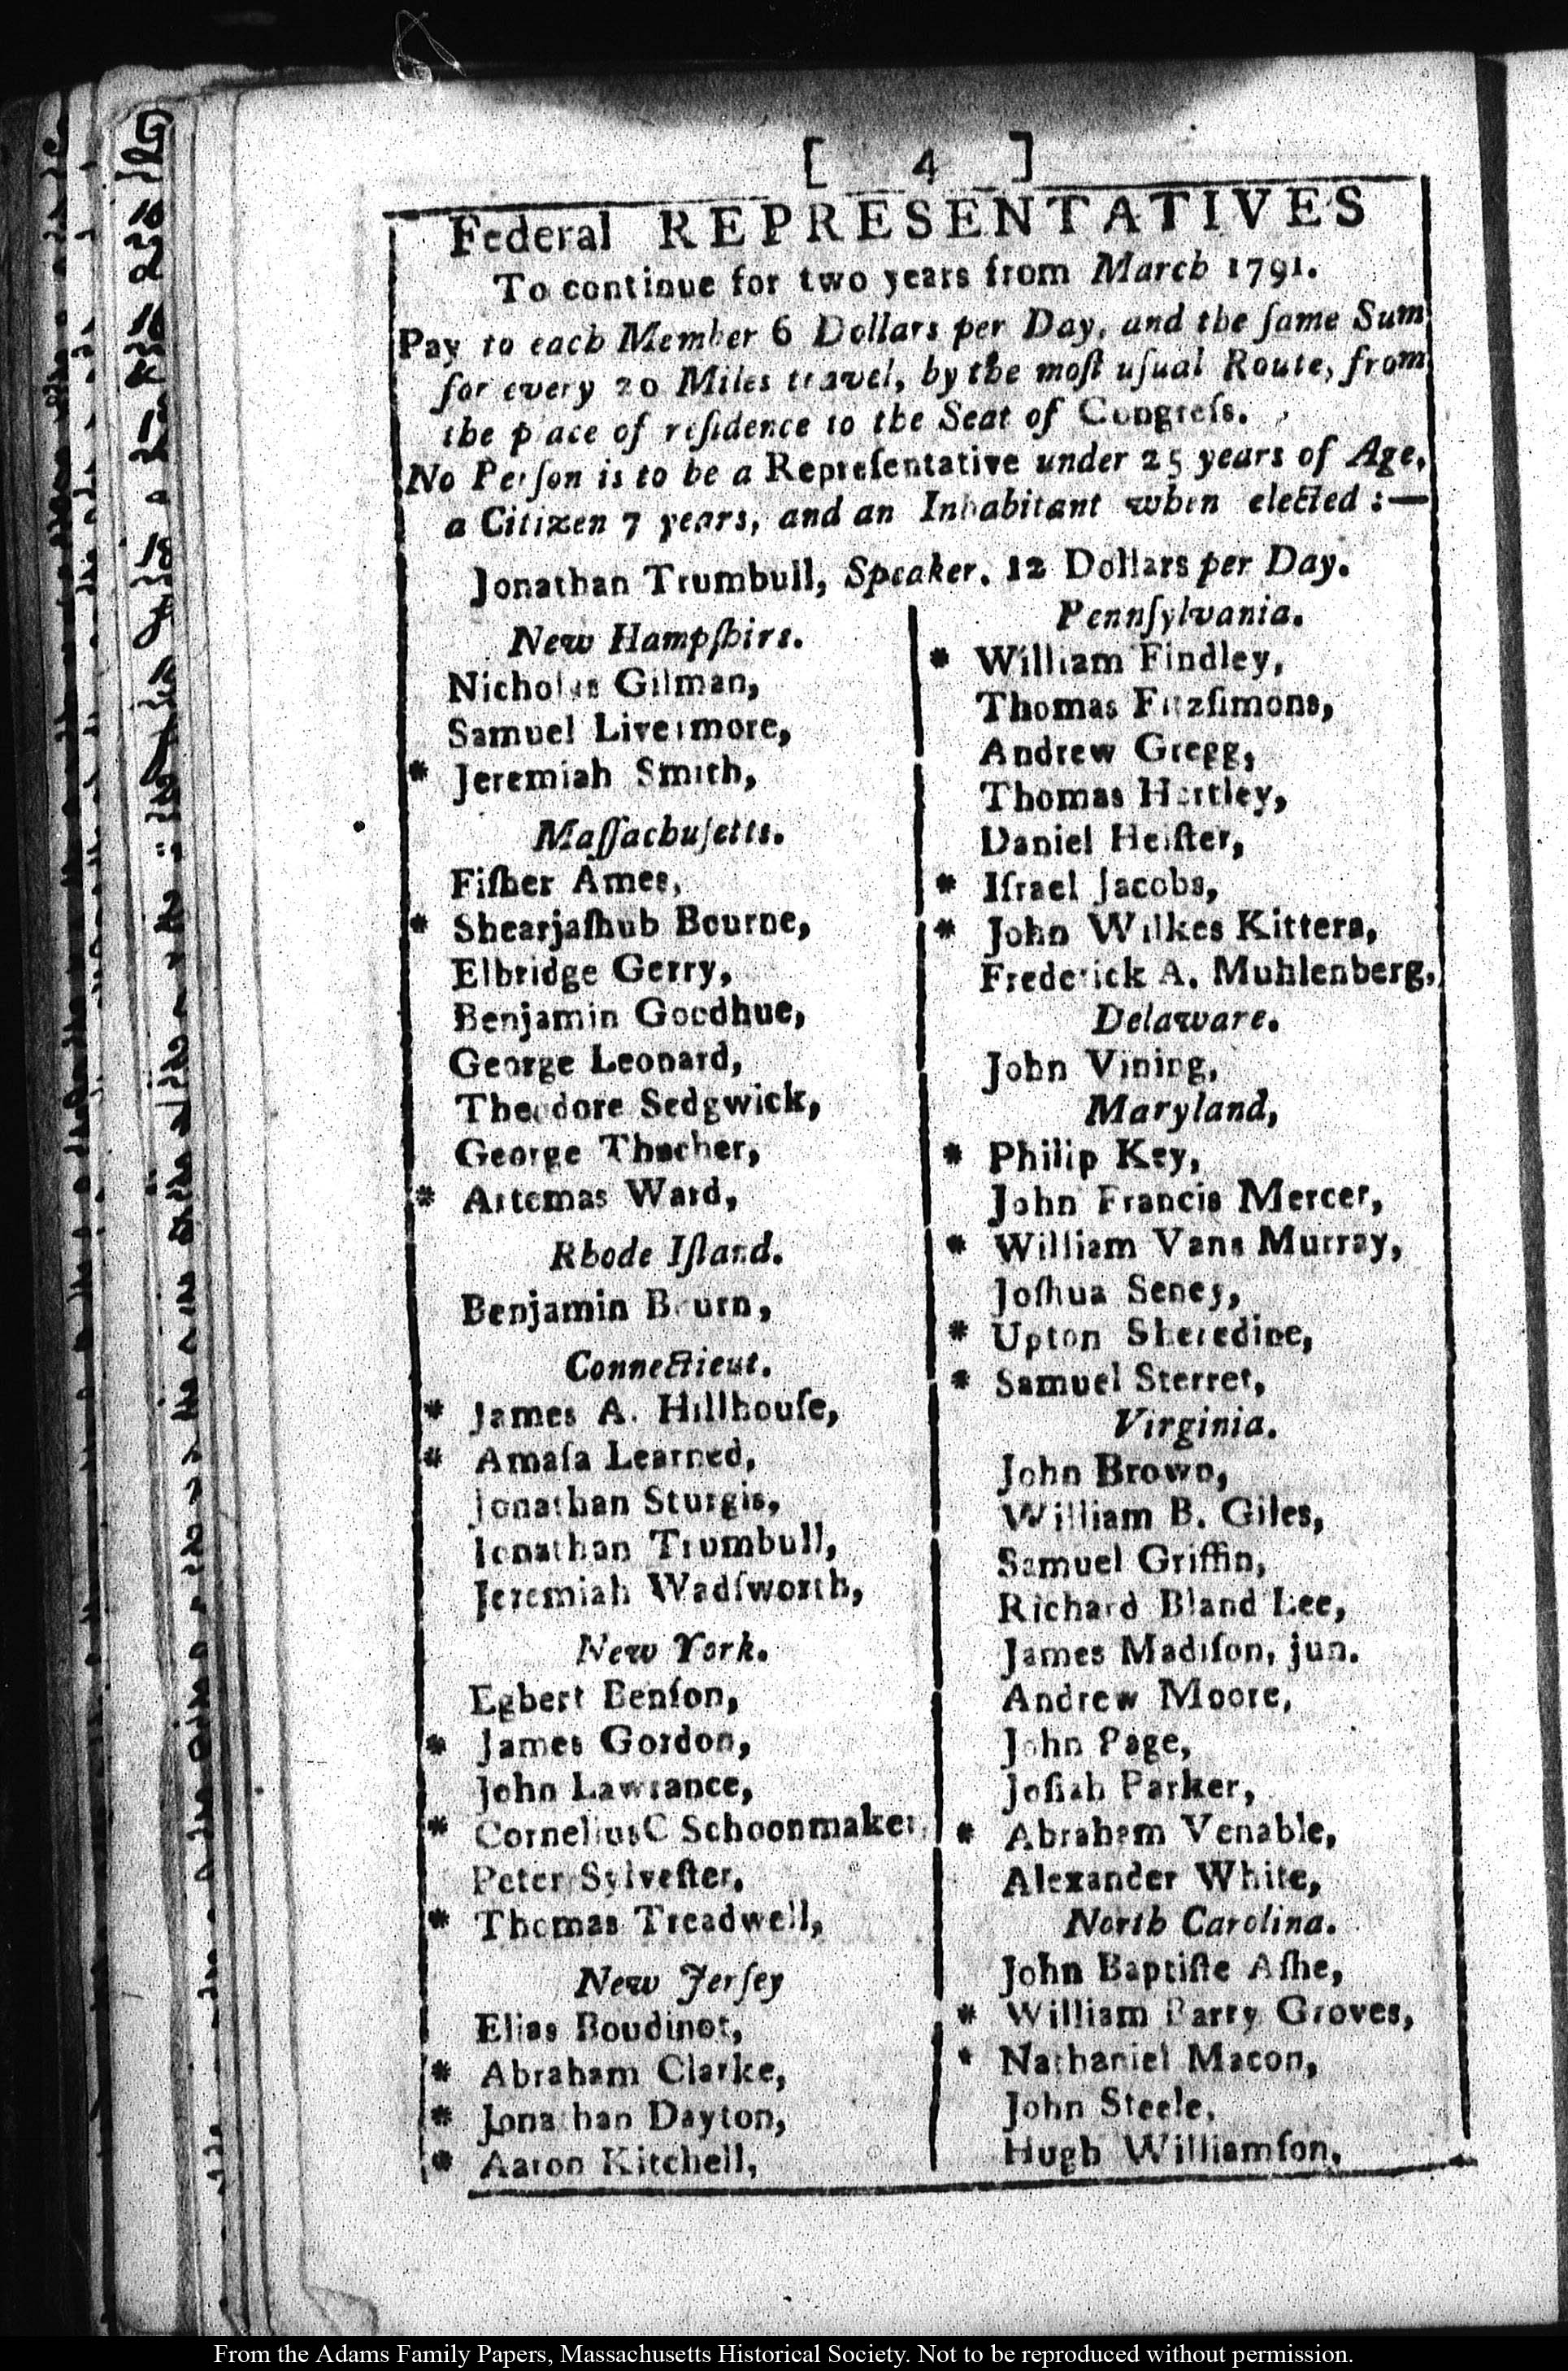 [ 4 ]
Federal REPRESENTATIVES
To continue for two years from March 1791.
Pay to each Member 6 Dollars per Day, and the ſame Sum
for every 20 Miles travel, by the moſt uſual Route, from
the place of reſidence to the Seat of Congreſs.
No Perſon is to be a Repreſentative under 25 years of Age,
a Citizen 7 years, and an Inhabitant when elected :—
Jonathan Trumbull, Speaker. 12 Dollars per Day.
New Hampſhire.
Nicholas Gilman,
Samuel Livermore,
* Jeremiah Smith,
Maſſachuſetts.
Fiſher Ames,
* Shearjaſhub Bourne,
Elbridge Gerry,
Benjamin Goodhue,
George Leonard,
Theodore Sedgwick,
George Thacher,
* Artemas Ward,
Rhode Iſland.
Benjamin Bourn,
Connecticut.
* James A. Hillhouſe,
* Amaſa Learned,
Jonathan Sturgis,
Jonathan Trumbull,
Jeremiah Wadſworth,
New York.
Egbert Benſon,
* James Gordon,
John Lawrance,
* Cornelius C Schoonmaker,
Peter Sylveſter,
* Thomas Treadwell,
New Jerſey
Elias Boudinot,
* Abraham Clarke,
* Jonathan Dayton,
* Aaron Kitchell,
Pennſylvania.
* William Findley,
Thomas Fitzſimons,
Andrew Gregg,
Thomas Hartley,
Daniel Heiſter,
* Iſrael Jacobs,
* John Wilkes Kittera,
Frederick A. Muhlenberg,
Delaware.
John Vining,
Maryland,
* Philip Key,
John Francis Mercer,
* William Vans Murray,
Joſhua Seney,
* Upton Sheredine,
* Samuel Sterret,
Virginia.
John Brown,
William B. Giles,
Samuel Griffin,
Richard Bland Lee,
James Madiſon, jun.
Andrew Moore,
John Page,
Joſiah Parker,
* Abraham Venable,
Alexander White,
North Carolina.
John Baptiſte Aſhe,
* William Barry Groves,
* Nathaniel Macon,
John Steele,
Hugh Williamſon.
From the Adams Family Papers, Massachusetts Historical Society. Not to be reproduced without permission.